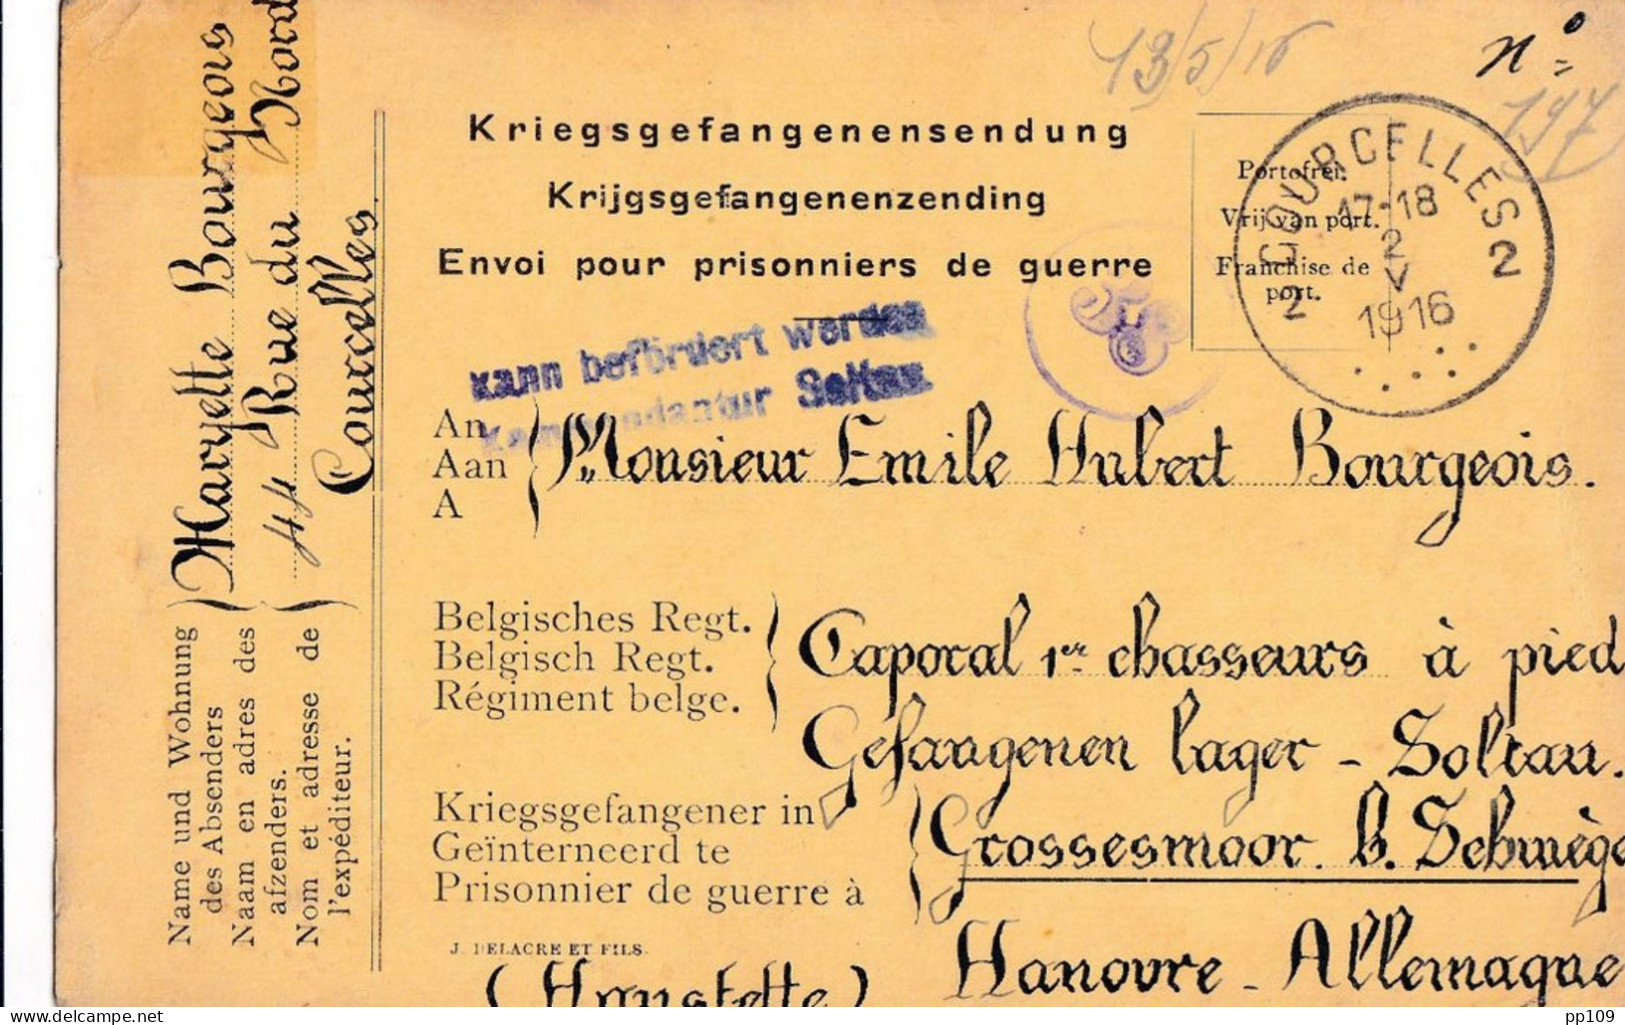 13/5/16
n°
197
Kriegsgefangenensendung
Krijgsgefangenenzending
Envoi pour prisonniers de guerre
Portofrei.
Vrij van port.
Franchise de
port.
2 COURCELLES 2
17-18
2
V
1916
kann befördert werden
Kommandantur Soltau
An
Aan
A
Monsieur Emile Hubert Bourgeois.
Belgisches Regt.
Belgisch Regt.
Régiment belge.
Caporal 1er chasseurs à pied
Gefangenen lager - Soltau.
Kriegsgefangener in
Geïnterneerd te
Prisonnier de guerre à
Grossesmoor. b. Schwège
Hanovre - Allemagne
J. DELACRE ET FILS.
(Hanstette)
Name und Wohnung
des Absenders
Naam en adres des
afzenders.
Nom et adresse de
l'expéditeur.
Maryette Bourgeois
44 Rue du Nord
Courcelles.
delcampe.net
pp109